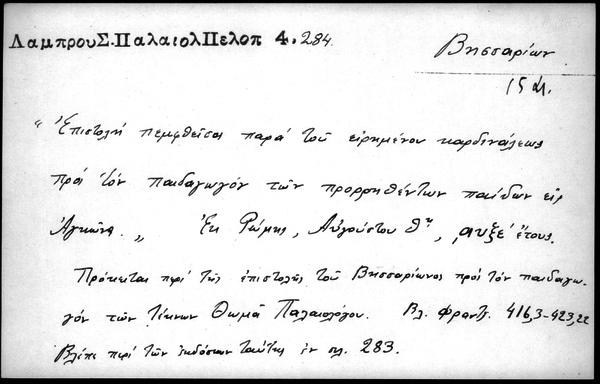 ΛαμπρουΣ.ΠαλαιολΠελοπ 4. 284.
Βησσαρίων
15 αἰ.
"Ἐπιστολή πεμφθεῖσα παρά τοῦ εἰρημένου καρδινάλεως
πρός τόν παιδαγωγόν τῶν προρρηθέντων παίδων εἰς
Ἀγκῶνα. „ Ἐκ Ρώμης, Αὐγούστου θη, ͵αυξε' ἔτους.
Πρόκειται περί τῆς ἐπιστολῆς τοῦ Βησσαρίωνος πρός τόν παιδαγω-
γόν τῶν τέκνων Θωμᾶ Παλαιολόγου. Βλ. Φραντζ. 416,3-423,22
Βλέπε περί τῶν ἐκδόσεων ταύτης ἐν σελ. 283.